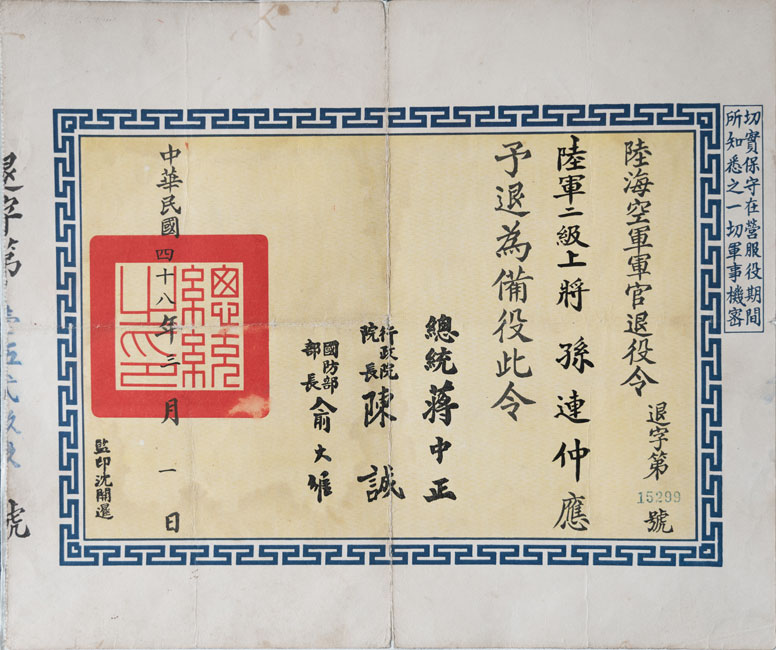 切實保守在營服役期間
所知悉之一切軍事機密
陸海空軍軍官退役令
退字第
15299
號
陸軍二級上將 孫連仲 應
予退為備役此令
總統 蔣中正
行政院
院長 陳誠
國防部
部長 俞大維
總統
之印
中華民國四十八年三月一日
監印沈開運
退字第
號